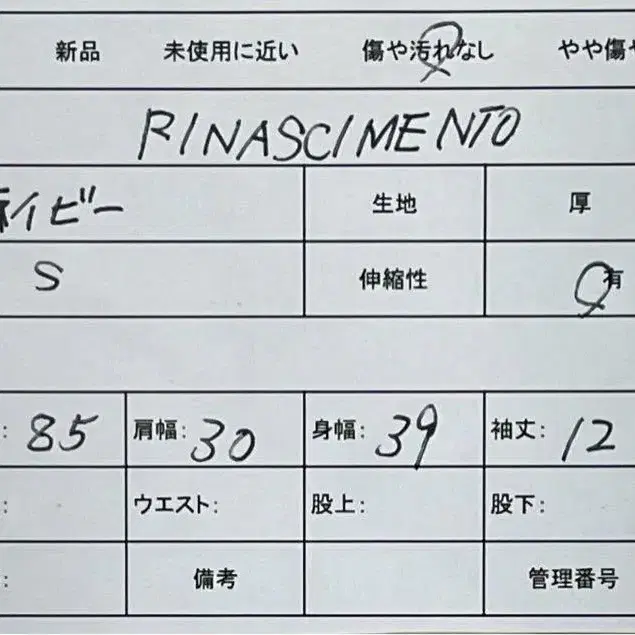 新品 未使用に近い 傷や汚れなし やや傷や
RINASCIMENTO
ネイビー 生地 厚
S 伸縮性 有
: 85 肩幅: 30 身幅: 39 袖丈: 12
: ウエスト: 股上: 股下:
: 備考 管理番号